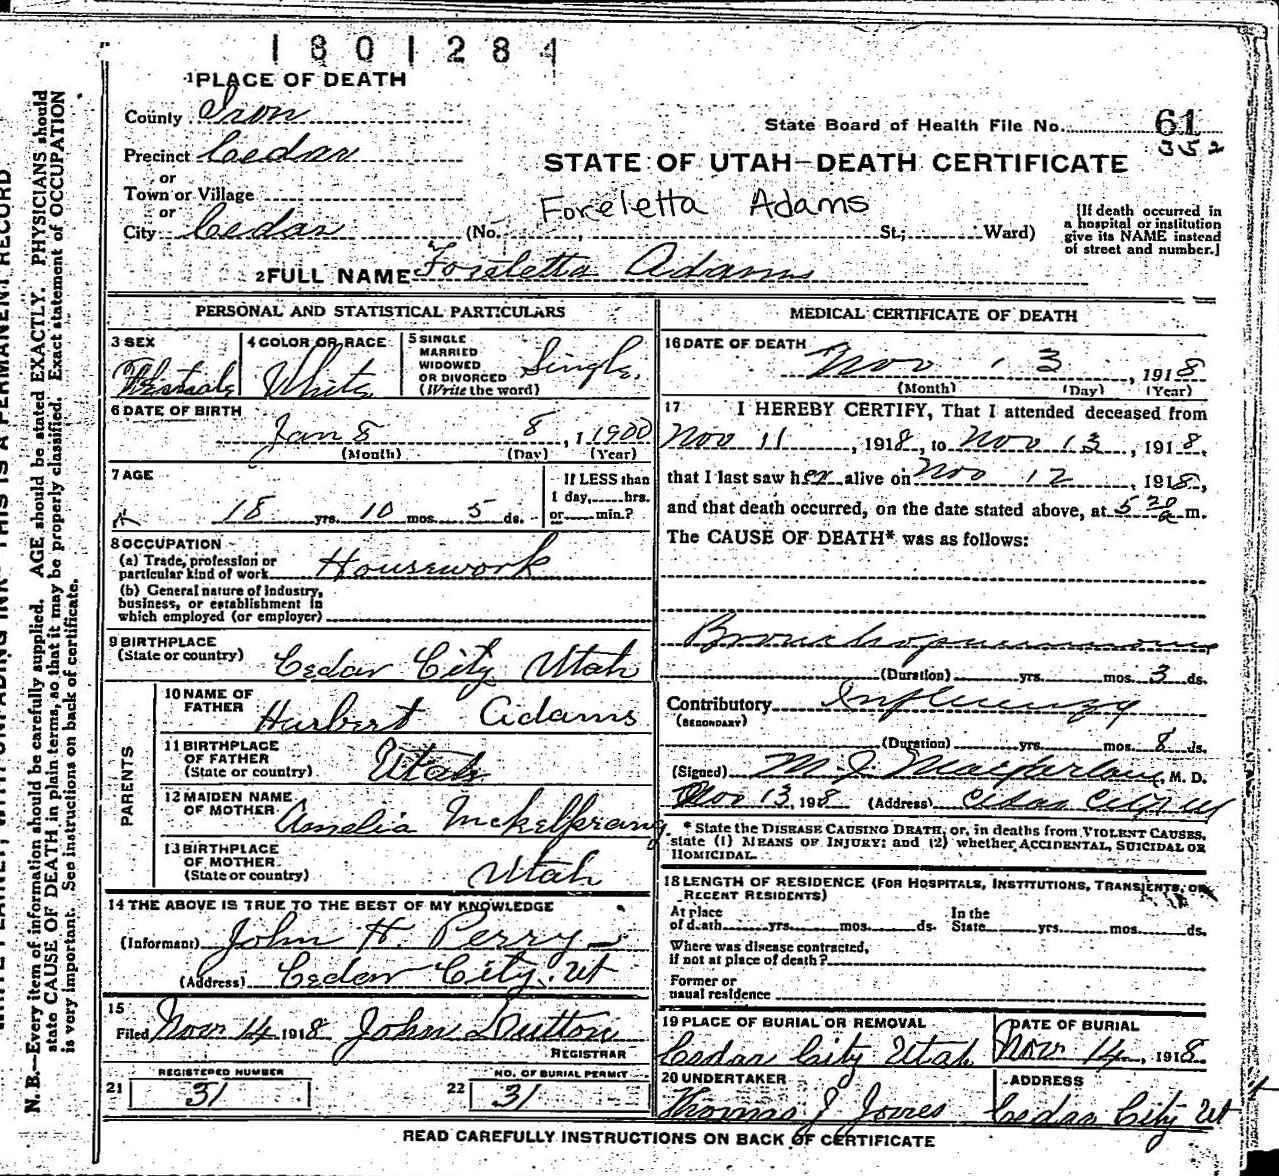 1801284
1 PLACE OF DEATH
County Iron
State Board of Health File No. 61
352
Precinct Cedar
STATE OF UTAH—DEATH CERTIFICATE
or
Town or Village
or
Foreletta Adams
City Cedar (No. , St; Ward)
[If death occurred in
a hospital or institution
give its NAME instead
of street and number.]
2 FULL NAME Foreletta Adams
PERSONAL AND STATISTICAL PARTICULARS
3 SEX
4 COLOR OR RACE
White
5 SINGLE
MARRIED
WIDOWED
OR DIVORCED
(Write the word)
Single.
6 DATE OF BIRTH
Jan 8 8, 1 1900
(Month) (Day) (Year)
7 AGE
18 yrs. 10 mos. 5 ds.
If LESS than
1 day, hrs.
or min.?
8 OCCUPATION
(a) Trade, profession or
particular kind of work Housework
(b) General nature of Industry,
business, or establishment in
which employed (or employer)
9 BIRTHPLACE
(State or country) Cedar City Utah
PARENTS
10 NAME OF
FATHER
Hurbert Adams
11 BIRTHPLACE
OF FATHER
(State or country) Utah
12 MAIDEN NAME
OF MOTHER Amelia Mckelprang
13 BIRTHPLACE
OF MOTHER
(State or country) Utah
14 THE ABOVE IS TRUE TO THE BEST OF MY KNOWLEDGE
(Informant) John H. Perry
(Address) Cedar City. Ut
15
Filed Nov 14 1918 John Dutton
REGISTRAR
REGISTERED NUMBER
21 31
NO. OF BURIAL PERMIT
22 31
MEDICAL CERTIFICATE OF DEATH
16 DATE OF DEATH
Nov 13, 1918
(Month) (Day) (Year)
17 I HEREBY CERTIFY, That I attended deceased from
Nov 11, 1918, to Nov 13, 1918,
that I last saw her alive on Nov 12, 1918,
and that death occurred, on the date stated above, at 5 30 a m.
The CAUSE OF DEATH* was as follows:
Bronchopneumonia
(Duration) yrs. mos. 3 ds.
Contributory Influenza
(SECONDARY)
(Duration) yrs. mos. 8 ds.
(Signed) M J Macfarlane, M. D.
Nov 13, 1918 (Address) Cedar City Ut
* State the DISEASE CAUSING DEATH, or, in deaths from VIOLENT CAUSES,
state (1) MEANS OF INJURY; and (2) whether ACCIDENTAL, SUICIDAL OR
HOMICIDAL.
18 LENGTH OF RESIDENCE (FOR HOSPITALS, INSTITUTIONS, TRANSIENTS, OR
RECENT RESIDENTS)
At place
of death yrs. mos. ds.
In the
State yrs. mos. ds.
Where was disease contracted,
if not at place of death?
Former or
usual residence
19 PLACE OF BURIAL OR REMOVAL
Cedar City Utah
DATE OF BURIAL
Nov 14, 1918
20 UNDERTAKER
Thomas J Jones
ADDRESS
Cedar City Ut
READ CAREFULLY INSTRUCTIONS ON BACK OF CERTIFICATE
THIS IS A PERMANENT RECORD
N. B.—Every item of information should be carefully supplied. AGE should be stated EXACTLY. PHYSICIANS should
state CAUSE OF DEATH in plain terms, so that it may be properly classified. Exact statement of OCCUPATION
is very important. See instructions on back of certificate.